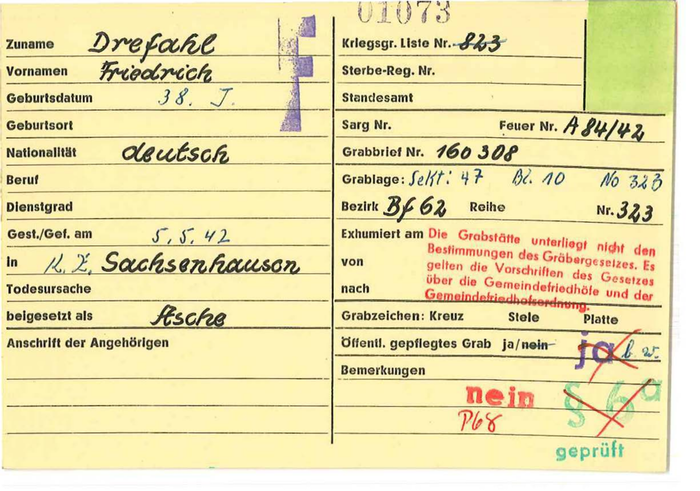 01073
Zuname Drefahl
Vornamen Friedrich
Geburtsdatum 38. J.
Geburtsort
Nationalität deutsch
Beruf
Dienstgrad
Gest./Gef. am 5.5.42
In K.Z. Sachsenhausen
Todesursache
beigesetzt als Asche
Anschrift der Angehörigen
Kriegsgr. Liste Nr. 823
Sterbe-Reg. Nr.
Standesamt
Sarg Nr. Feuer Nr. A 84/42
Grabbrief Nr. 160 308
Grablage: Sekt: 47 Bl. 10 No 323
Bezirk Bf 62 Reihe Nr. 323
Exhumiert am
von
nach
Die Grabstätte unterliegt nicht den
Bestimmungen des Gräbergesetzes. Es
gelten die Vorschriften des Gesetzes
über die Gemeindefriedhöfe und der
Gemeindefriedhofsordnung.
Grabzeichen: Kreuz Stele Platte
Öffentl. gepflegtes Grab ja/nein ja b. w.
Bemerkungen
nein § 6a
P68
geprüft